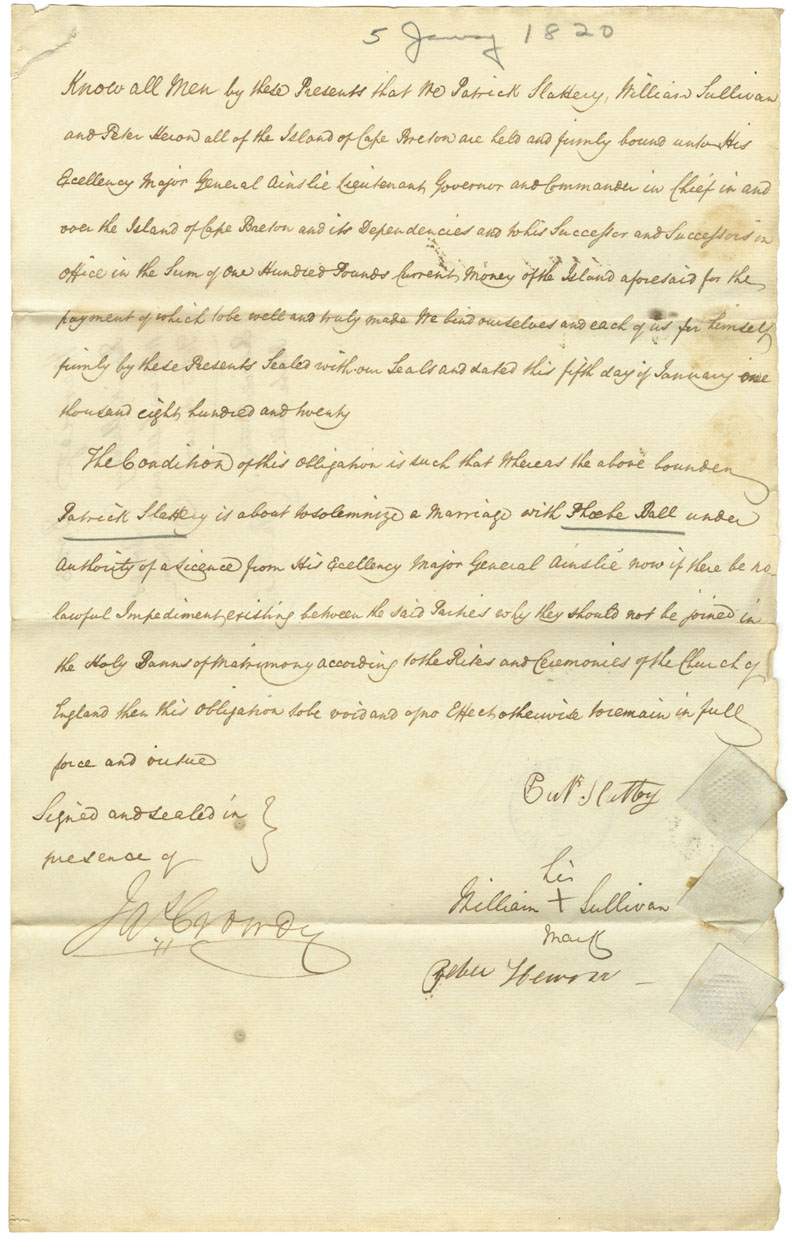 5 Janry 1820
Know all Men by these Presents that We Patrick Slattery, William Sullivan
and Peter Heron all of the Island of Cape Breton are held and firmly bound unto His
Excellency Major General Ainslie Lieutenant Governor and Commander in Chief in and
over the Island of Cape Breton and its Dependencies and to his Successor and Successors in
office in the Sum of One Hundred Pounds Current Money of the Island aforesaid for the
payment of which to be well and truly made We bind ourselves and each of us for himself
firmly by these Presents Sealed with our Seals and dated this fifth day of January one
thousand eight hundred and twenty
The Condition of this obligation is such that Whereas the above bounden
Patrick Slattery is about to solemnize a Marriage with Phoebe Ball under
Authority of a Licence from His Excellency Major General Ainslie now if there be no
lawful Impediment existing between the said Parties why they should not be joined in
the Holy Banns of Matrimony according to the Rites and Ceremonies of the Church of
England then this obligation to be void and of no Effect otherwise to remain in full
force and virtue
Signed and sealed in
presence of
Jas Crowdy
Slattery
his
William + Sullivan
mark
Peter Heron